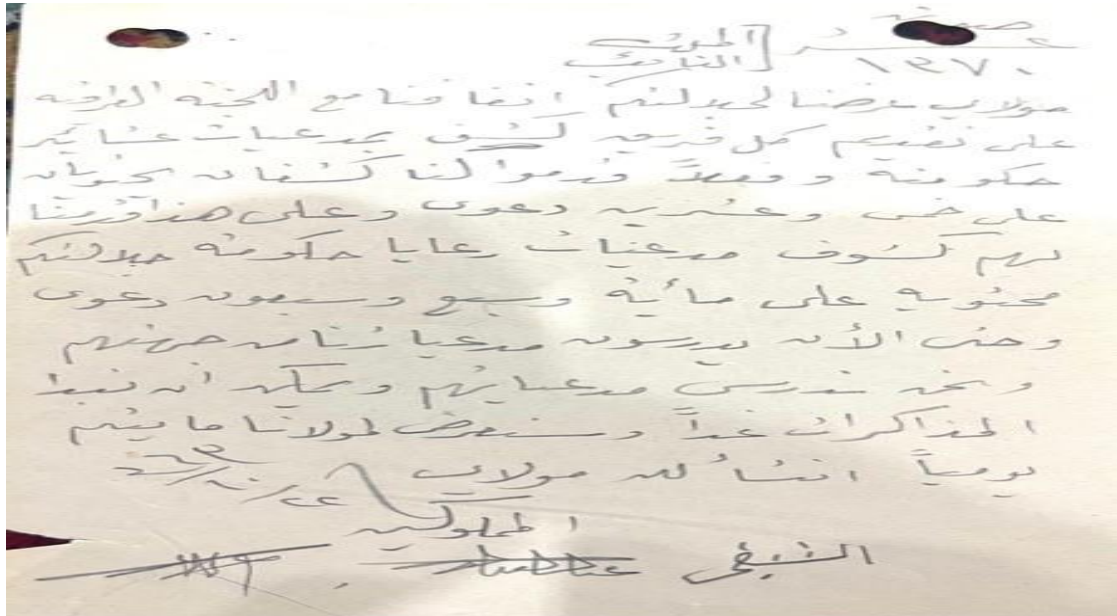 ١٣٧٠
مولاي عرضنا لجلالتكم اتفاقنا مع اللجنة العراقيه
على تقديم كل فريق كشف بمدعيات عشاير
حكومته وفعلاً قدموا لنا كشفان يحتويان
على خمس وعشرين دعوى وعلى هذا قدمنا
لهم كشوف مدعيات رعايا حكومة جلالتكم
محتويه على مأية وسبع وسبعون دعوى
وحتى الأن يدرسون مدعياتنا من جهتهم
ونحن ندرس مدعياتهم ويمكن أن نبدا
المذاكرات غداً وسنعرض لمولانا ما يتم
يومياً انشأ لله مولاي
المملوكين